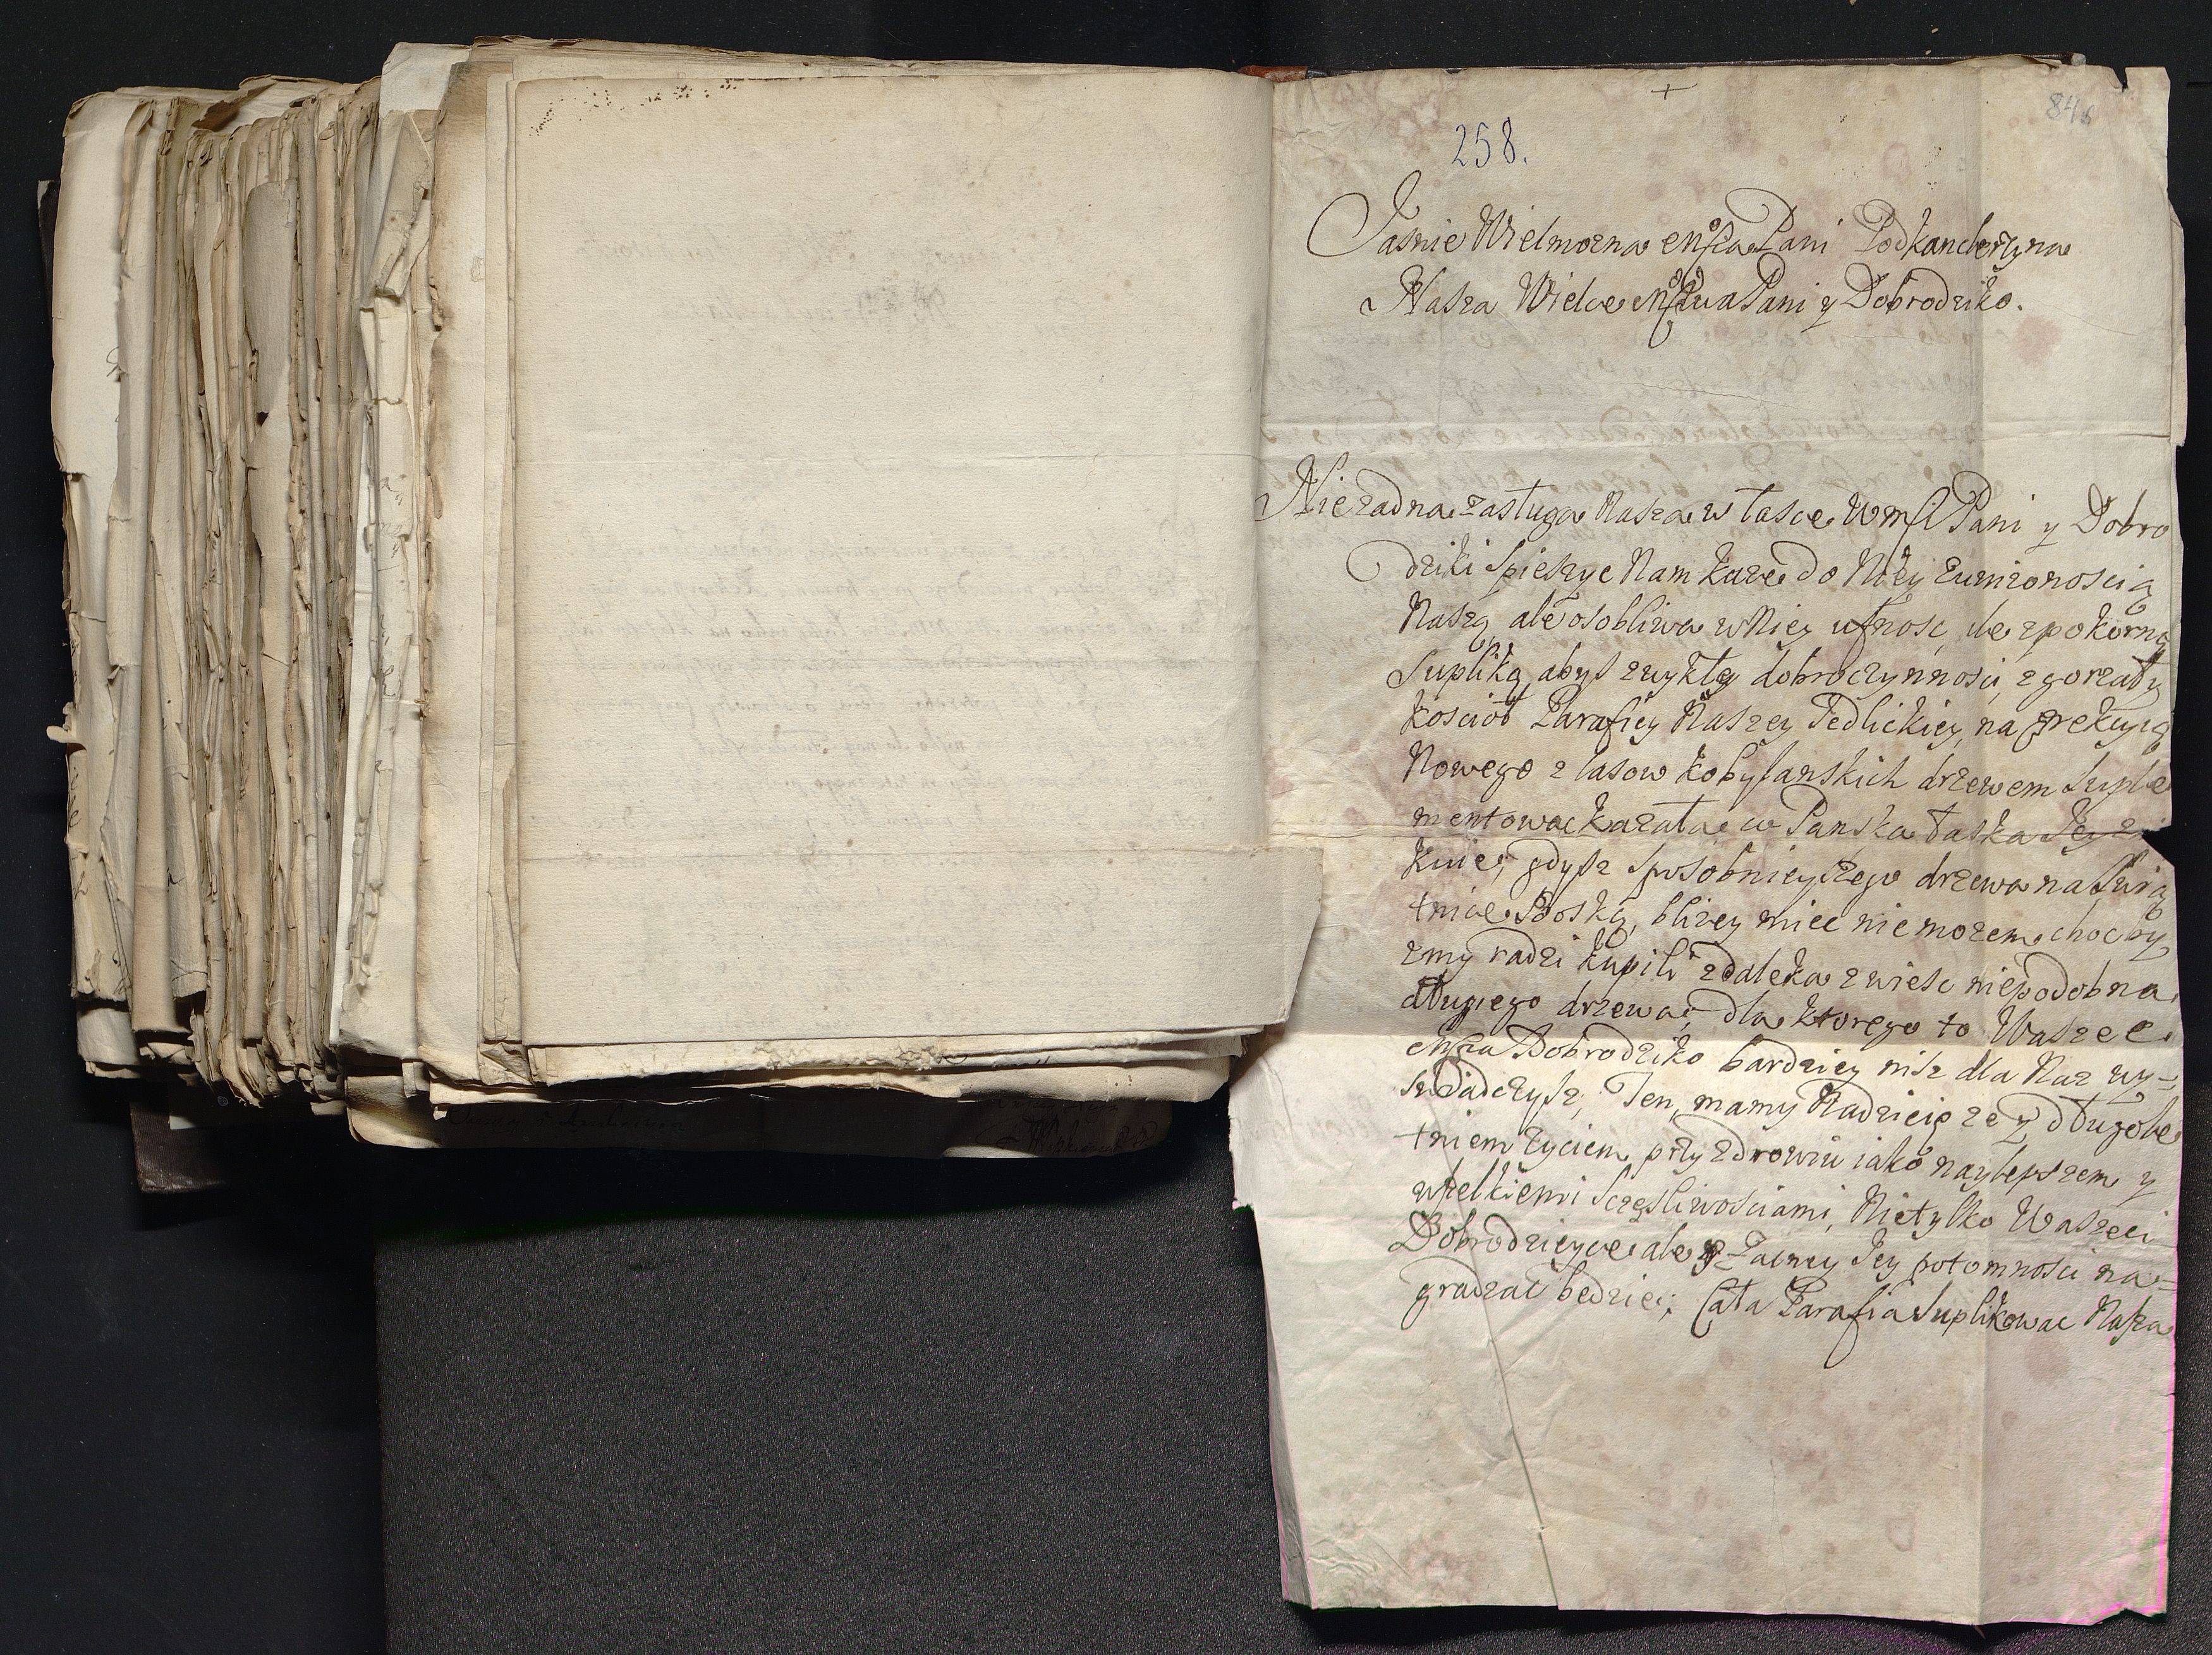 846
+
258.
Jasnie Wielmozna Mscia Pani Podkanclerzyna
Nasza Wielce Msciwa Pani y Dobrodziko.
Nie zadna zasługa Nasza w łasce WMsc Pani y Dobro
dziki spieszyc Nam kaze do Niey zunizonoscią
Naszą, ale osobliwa w Niey ufnosc, ile z pokorną
Supliką, abys zwykłey dobroczynnosci zgorzały
Kosciół Parafiey Naszey Jedlickiey, na erekcyią
Nowego z lasow Kobylanskich drzewem suple
mentowac kazała, w Panska łaska Jey
gdysz sposobnieyszego drzewa na Swią
tnice Boską, blizey miec nie mozem, chocby
zmy radzi kupili zdaleka zwiesc niepodobna,
długiego drzewa; dla ktorego to Waszec
Mscia Dobrodziko bardziey nisz dla Nas wy=
swiadczysz, Ten, mamy Nadzieię ze y długole
tniem zyciem, przy zdrowiu iako naylepszem y
wszelkiemi sczęsliwosciami, Nietylko Waszeci
Dobrodzieyce, ale y zacney Jey potomnosci na=
gradzac bedzie; Cała Parafia suplikowac Nasza